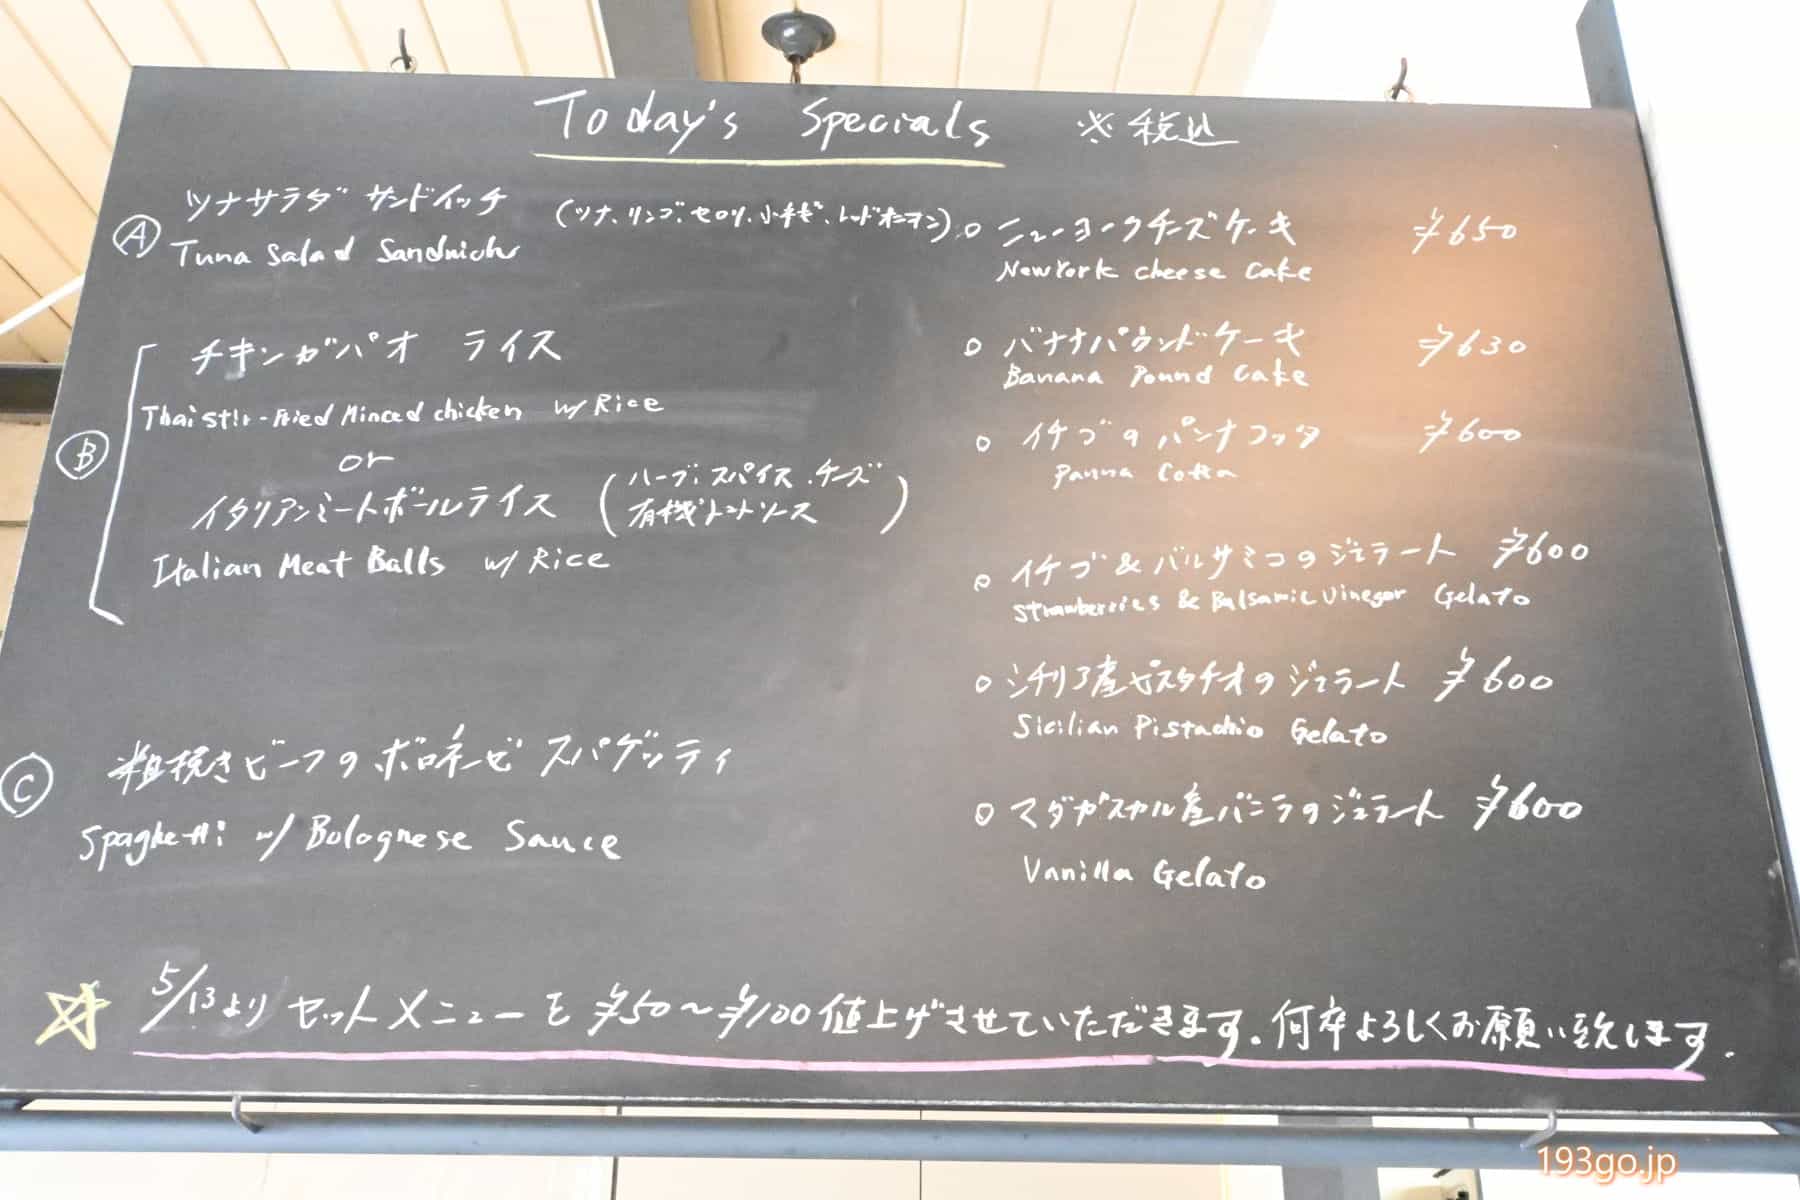 Today's Specials ※税込
Ⓐ ツナサラダ サンドイッチ (ツナ、リンゴ、セロリ、小ネギ、レッドオニオン)
Tuna Salad Sandwich
Ⓑ チキンガパオ ライス
Thai Stir-Fried Minced chicken w/ Rice
or
イタリアンミートボールライス (ハーブ、スパイス、チーズ
有機トマトソース)
Italian Meat Balls w/ Rice
Ⓒ 粗挽きビーフのボロネーゼ スパゲッティ
Spaghetti w/ Bolognese Sauce
○ ニューヨークチーズケーキ ¥650
New York cheese Cake
○ バナナパウンドケーキ ¥630
Banana Pound Cake
○ イチゴのパンナコッタ ¥600
Panna Cotta
○ イチゴ&バルサミコのジェラート ¥600
Strawberries & Balsamic Vinegar Gelato
○ シチリア産ピスタチオのジェラート ¥600
Sicilian Pistachio Gelato
○ マダガスカル産バニラのジェラート ¥600
Vanilla Gelato
☆ 5/13より セットメニューを ¥50〜¥100値上げさせていただきます。何卒よろしくお願い致します.
193go.jp